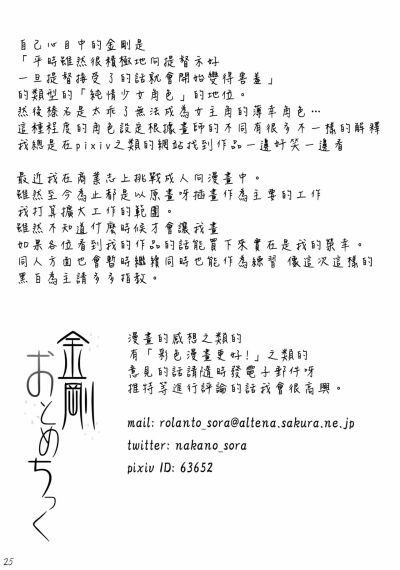 自己心目中的金剛是
「平時雖然很積極地向提督示好
一旦提督接受了的話就會開始變得害羞」
的類型的「純情少女角色」的地位。
然後榛名是太乖了無法成為女主角的薄幸角色…
這種程度的角色設定根據畫師的不同有很多不一樣的解釋
我總是在pixiv之類的網站找到作品一邊奸笑一邊看
最近我在商業志上挑戰成人向漫畫中。
雖然至今為止都是以原畫呀插畫作為主要的工作
我打算擴大工作的範圍。
雖然不知道什麼時候才會讓我畫
如果各位看到我的作品的話能買下來實在是我的榮幸。
同人方面也會暫時繼續同時也能作為練習 像這次這樣的
黑白為主請多多指教。
漫畫的感想之類的
有「彩色漫畫更好！」之類的
意見的話請隨時發電子郵件呀
推特等進行評論的話我會很高興。
mail: rolanto_sora@altena.sakura.ne.jp
twitter: nakano_sora
pixiv ID: 63652
金剛
おとめちっく
25